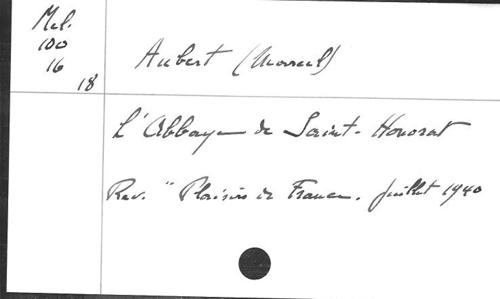 Mel.
100
16
18
Aubert (Marcel)
L'Abbaye de Saint-Honorat
Rev. " Plaisirs de France. Juillet 1940